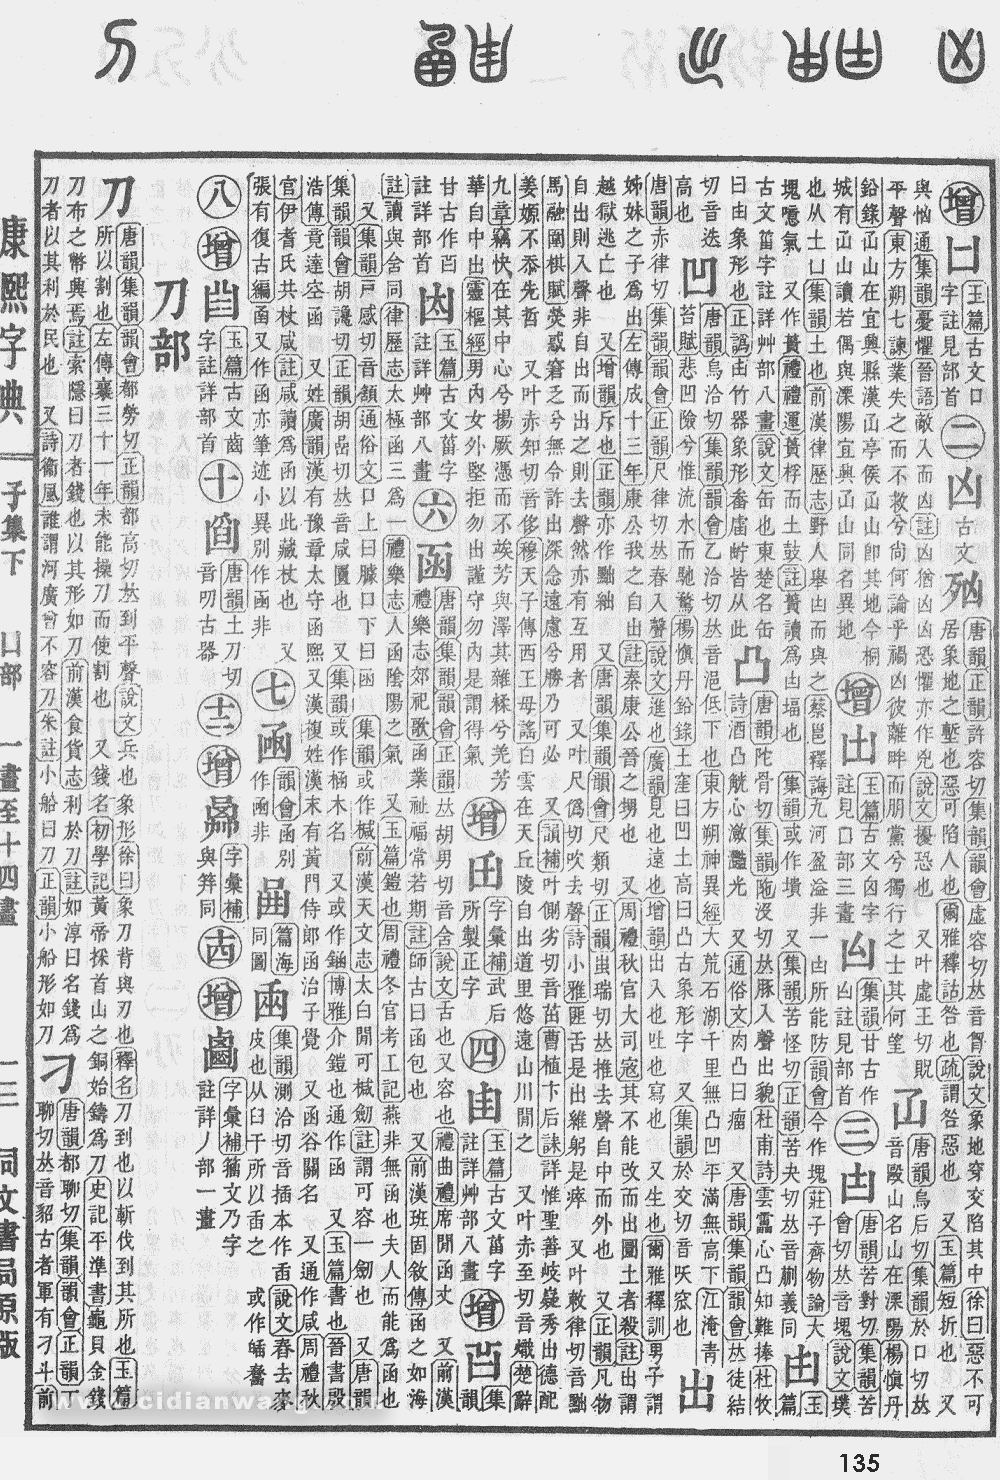 增 𠙴 玉篇古文口字註見部首 二 凶 古文 殈 唐韻正韻許容切集韻韻會虛容切𠀤音胷說文惡也象地穿交陷其中徐曰惡不可居象地之塹也惡可陷人也爾雅釋詁咎也疏謂咎惡也 又玉篇短折也 又
與恟通集韻憂懼晉語敵人而凶註凶猶凶凶恐懼亦作兇說文擾恐也 又叶虛王切貺
平聲東方朔七諫業失之而不救兮尙何論乎禍凶彼離畔而朋黨兮獨行之士其何望
唐韻烏后切集韻於口切𠀤音毆山名山在溧陽楊愼丹
鉛錄山在宜興縣漢山亭侯山卽其地今桐
城有山山讀若偶與溧陽宜興山同名異地 增 出 玉篇古文凶字註見凵部三畫
集韻甘古作凶註見部首 三 凷 唐韻苦對切集韻苦會切𠀤音塊說文墣
也从土凵集韻土也前漢律歷志野人舉凷而與之蔡邕釋誨九河盈溢非一凷所能防韻會今作塊莊子齊物論大
塊噫氣 又作蕢禮禮運蕢桴而土鼓註蕢讀爲凷堛也 集韻或作墤 又集韻苦怪切正韻苦夬切𠀤音蒯義同 玉篇
古文甾字註詳艸部八畫說文缶也東楚名缶
曰甶象形也正譌由竹器象形畚𤲃皆从此 凸 唐韻陀骨切集韻陁沒切𠀤豚入聲出貌杜甫詩雲靐心凸知難捧杜牧
詩酒凸觥心瀲灩光 又通俗文肉凸曰瘤 又唐韻集韻韻會𠀤徒結
切音迭
高也 凹 唐韻烏洽切集韻韻會乙洽切𠀤音浥低下也東方朔神異經大荒石湖千里無凸凹平滿無高下江淹靑
苔賦悲凹險兮惟流水而馳騖楊愼丹鉛錄土窪曰凹土高曰凸古象形字 又集韻於交切音㕭窊也 出
唐韻赤律切集韻韻會正韻尺律切𠀤春入聲說文進也廣韻見也遠也增韻出入也吐也寫也 又生也爾雅釋訓男子謂
姊妹之子爲出左傳成十三年康公我之自出註秦康公晉之甥也 又周禮秋官大司寇其不能改而出圜土者殺註出謂
越獄逃亡也 又增韻斥也正韻亦作黜絀 又唐韻集韻韻會尺類切正韻蚩瑞切𠀤推去聲自中而外也 又正韻凡物
自出出則入聲非自出而出之則去聲然亦有互用者 又叶尺僞切吹去聲詩小雅匪舌是出維躬是瘁 又叶敕律切音黜
馬融圍棋賦熒惑窘乏兮無令詐出深念遠慮兮勝乃可必 又韻補叶側劣切音茁曹植卞后誄詳惟聖善岐嶷秀出德配
姜嫄不忝先哲 又叶赤知切音侈穆天子傳西王母謠白雲在天丘陵自出道里悠遠山川閒之 又叶赤至切音熾楚辭
九章竊快在其中心兮揚厥憑而不竢芳與澤其雜糅兮羌芳
華自中出靈樞經男內女外堅拒勿出謹守勿內是謂得氣
增 𠙶 字彙補武后所製正字 四 甶 玉篇古文甾字註詳艸部八畫 增 㘝 集韻
甘古作㘝註詳部首 㚎 玉篇古文甾字註詳艸部八畫 六 函 唐韻集韻韻會正韻𠀤胡男切音含說文舌也 又容也禮曲禮席閒函丈 又前漢
禮樂志郊祀歌函蒙祉福常若期註師古曰函包也 又前漢班固敘傳函之如海
註讀與含同律歷志太極函三爲一禮樂志人函陰陽之氣 又玉篇鎧也周禮冬官考工記燕非無函也夫人而能爲函也
又集韻戸感切音頷通俗文口上曰臄口下曰函 集韻或作椷前漢天文志太白閒可椷劒註謂可容一劒也 又唐韻
集韻韻會胡讒切正韻胡嵒切𠀤音咸匱也 又集韻或作椷木名 又或作𨨱博雅介鎧也通作函 又玉篇書也晉書殷
浩傳竟達空函 又姓廣韻漢有豫章太守函熙又漢復姓漢末有黃門侍郞函治子覺 又函谷關名 又通作咸周禮秋
官伊耆氏共杖咸註咸讀爲函以此藏杖也 又
張有復古編函又作凾亦筆迹小異別作凾非 七 凾 韻會函別作凾非 𠚊 篇海同圖 臿 集韻測洽切音插本作臿說文舂去麥
皮也从臼干所以臿之 或作䎹鍫
八 增 㽞 玉篇古文齒字註詳部首 十 𠚏 唐韻土刀切音叨古器 十二 增 𠚒 字彙補與筭同 十四 增 𠚖 字彙補籀文乃字註詳丿部一畫
刀部
刀 唐韻集韻韻會都勞切正韻都高切𠀤到平聲說文兵也象形徐曰象刀背與刃也釋名刀到也以斬伐到其所也玉篇
所以割也左傳襄三十一年未能操刀而使割也 又錢名初學記黃帝採首山之銅始鑄爲刀史記平準書龜貝金錢
刀布之幣興焉註索隱曰刀者錢也以其形如刀前漢食貨志利於刀註如淳曰名錢爲
刀者以其利於民也 又詩衞風誰謂河廣曾不容刀朱註小船曰刀正韻小船形如刀 刁 唐韻都聊切集韻韻會正韻丁
聊切𠀤音貂古者軍有刁斗前
康熙字典 子集下 凵部 一畫至十四畫 一三 同文書局原版
www.cidianwang.com
135